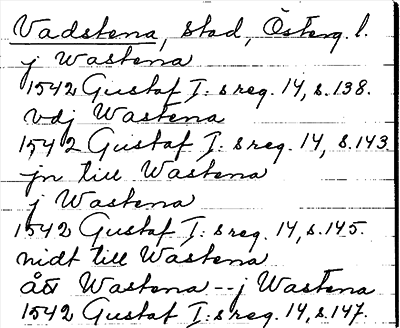 Vadstena, stad, Österg. l.
j Wastena
1542 Gustaf I:s reg. 14, s. 138.
vdj Wastena
1542 Gustaf I:s reg. 14, s. 143
jn till Wastena
j Wastena
1542 Gustaf I:s reg. 14, s. 145.
nidt till Wastena
ått Wastena -- j Wastena
1542 Gustaf I:s reg. 14, s. 147.